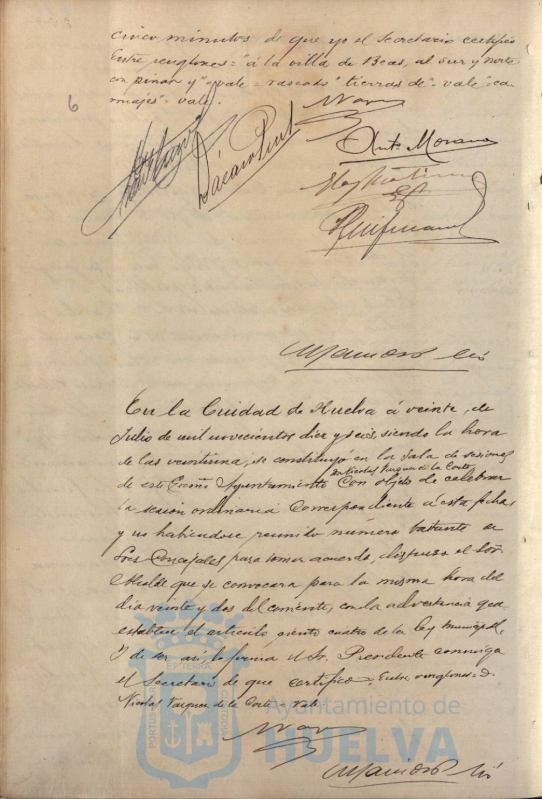 cinco minutos de que yo el Secretario certifico
Entre renglones = "á la villa de Beas, al sur y norte
con pinar y" = vale = rascado "tierras de" = vale "ca-
rruajes" = vale.
6
Anto. Moreno
En la Ciudad de Huelva á veinte, de
Julio de mil novecientos diez y seis, siendo la hora
de las veintiuna, se constituyó en la Sala de sesiones
Dn Nicolas Vazquez de la Corte
de este Excmo Ayuntamiento con objeto de celebrar
la sesion ordinaria correspondiente á esta fecha
y no habiendose reunido número bastante de
Sres Concejales para tomar acuerdo, dispuso el Sor
Alcalde que se convocara para la misma hora del
dia veinte y dos del corriente, con la advertencia que
establece el artículo ciento cuatro de la ley municipal,
Y de ser así, lo firma el Sr. Presidente conmigo
el Secretario de que certifico = Entre renglones = D.
Nicolas Vazquez de la Corte = vale
PORTUS MARIS
ET TERRÆ
CUSTODIA
Ayuntamiento de
HUELVA